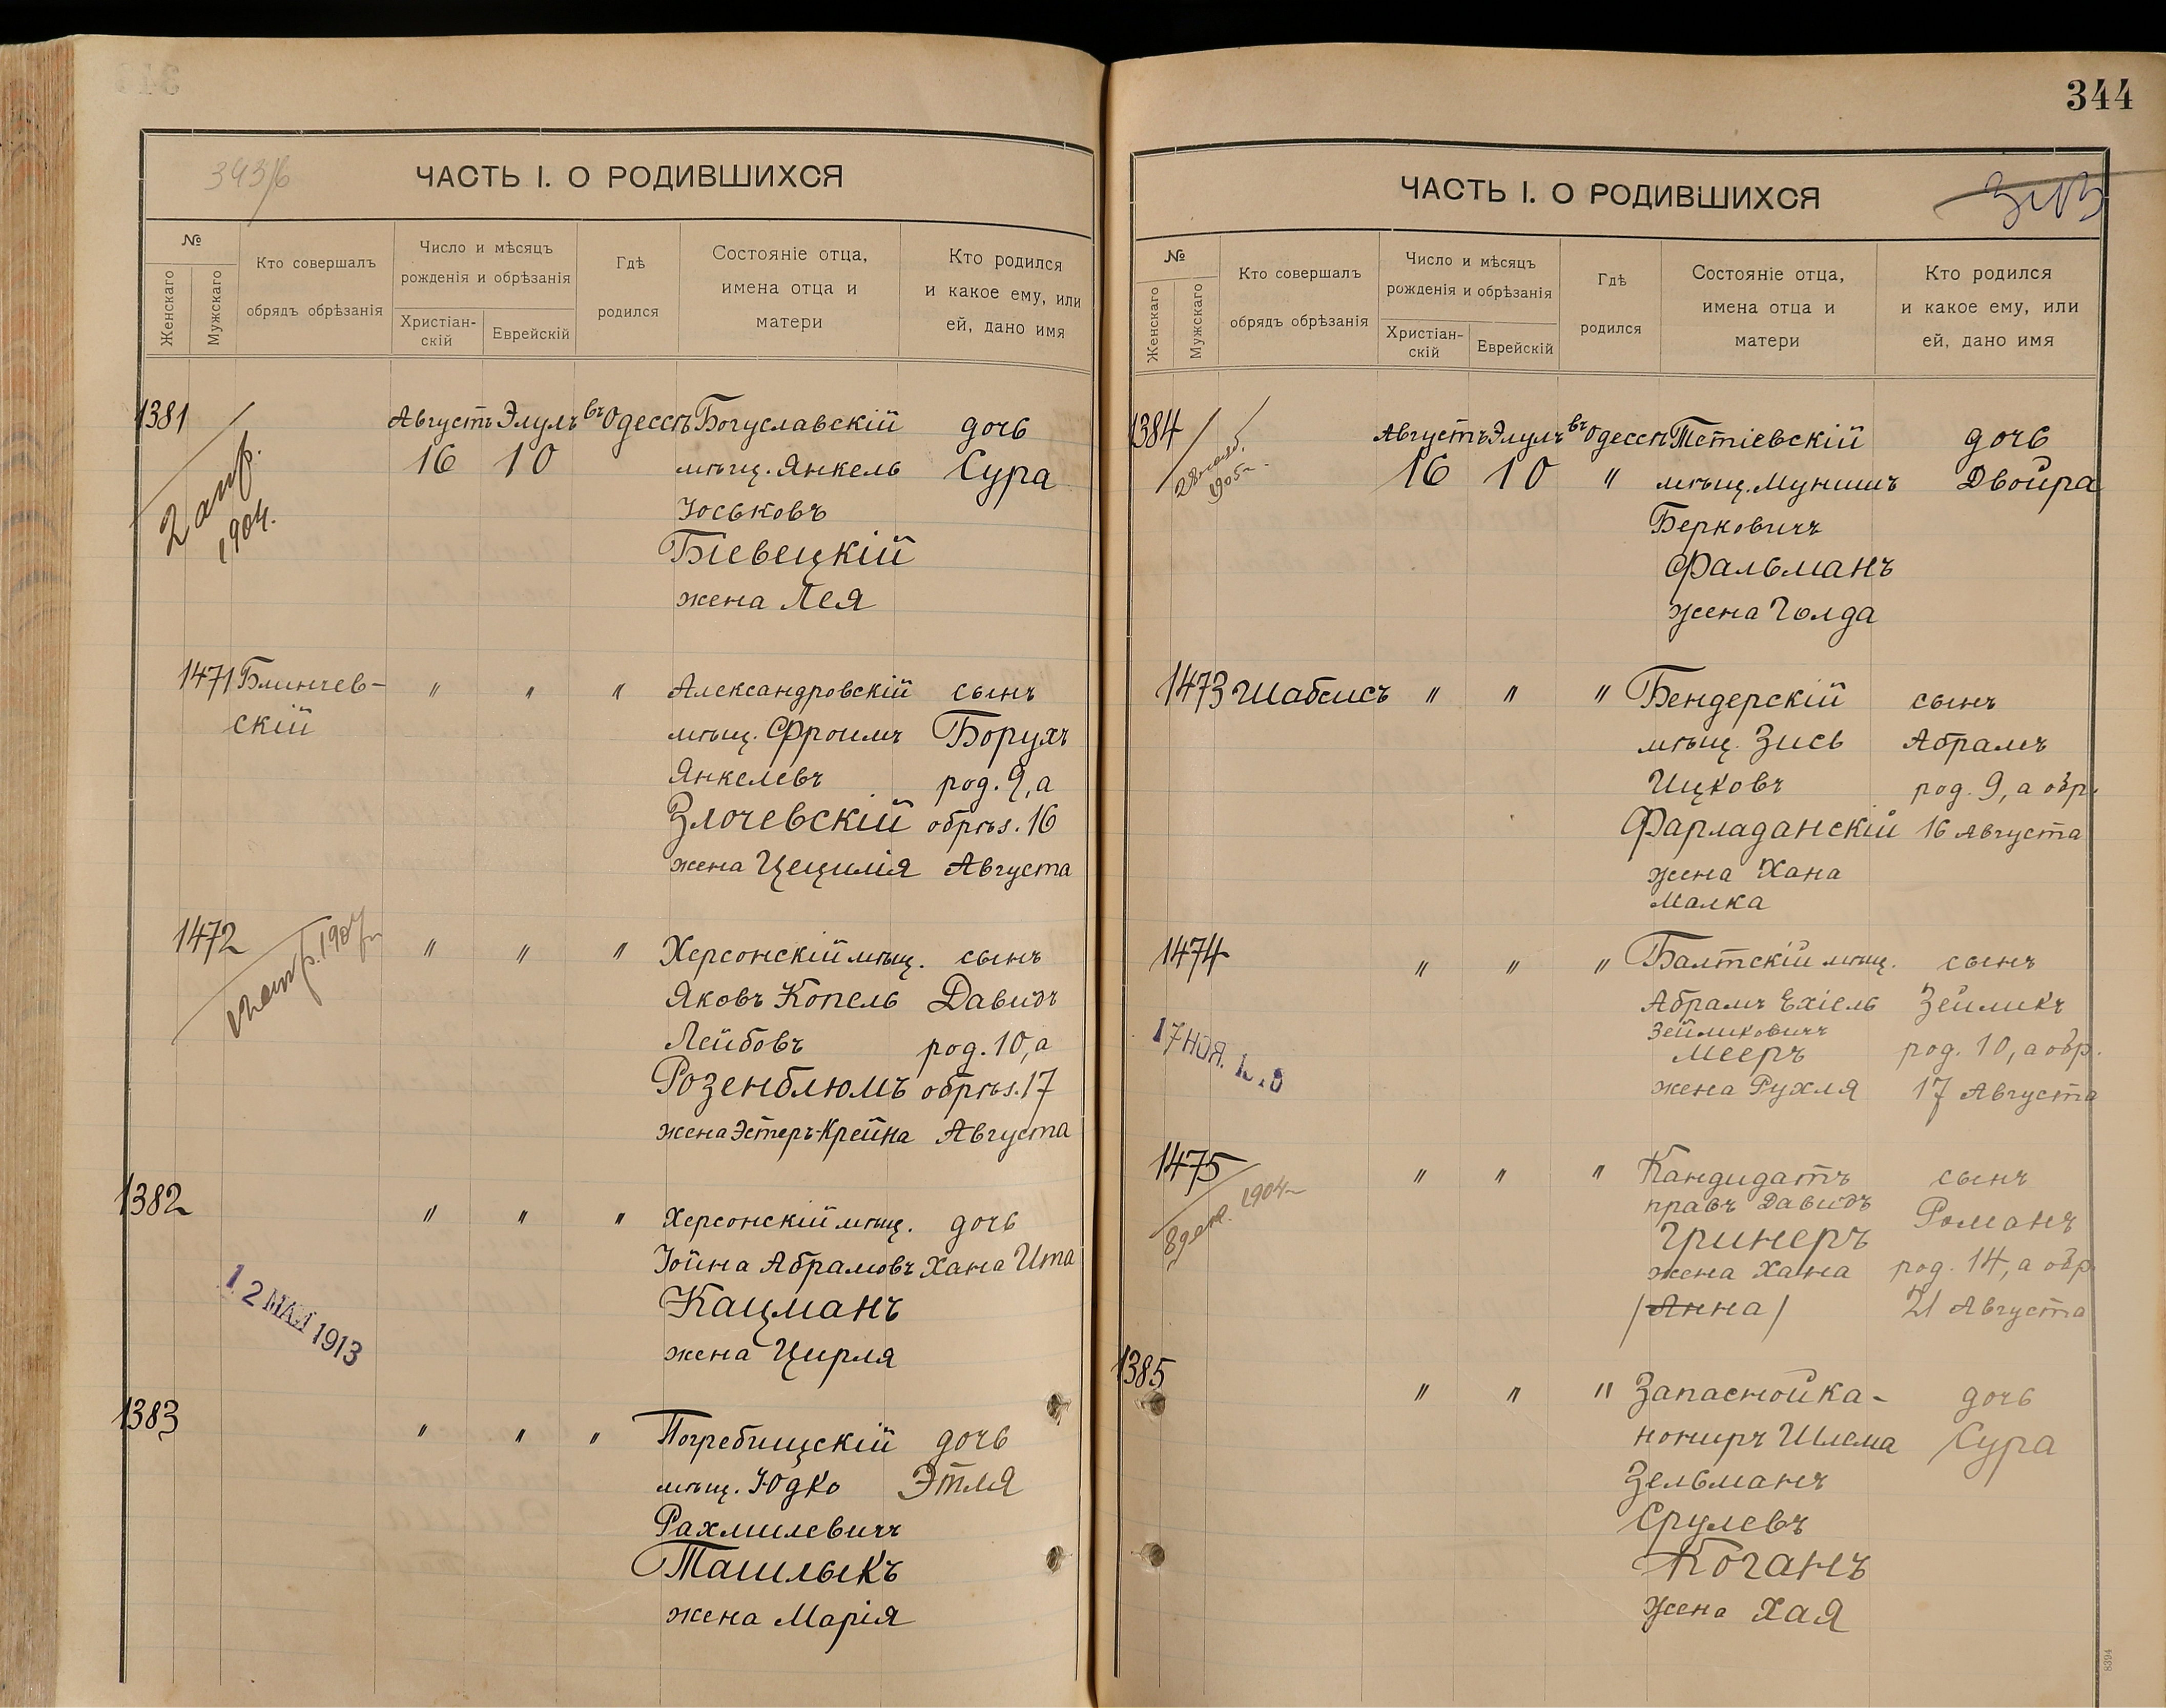 343/6
ЧАСТЬ I. О РОДИВШИХСЯ
№
Женскаго
Мужскаго
Кто совершалъ
обрядъ обрѣзанія
Число и мѣсяцъ
рожденія и обрѣзанія
Христіан-
скій
Еврейскій
Гдѣ
родился
Состояніе отца,
имена отца и
матери
Кто родился
и какое ему, или
ей, дано имя
1381 Августъ Элулъ въ Одессѣ Богуславскій дочь
16 10 мѣщ. Янкель Сура
Іоськовъ
2 апр.
1904.
Бѣевецкій
жена Лея
1471 Блинчев- " " " Александровскій сынъ
скій мѣщ. Фроимъ Борухъ
Янкелевъ род. 9, а
Злочевскій обрѣз. 16
жена Цецилія Августа
1472 " " " Херсонскій мѣщ. сынъ
Яковъ Копель Давидъ
Лейбовъ род. 10, а
Розенблюмъ обрѣз. 17
жена Эстеръ-Крейна Августа
1382 " " " Херсонскій мѣщ. дочь
Іойна Абрамовъ Хана Ита
12 МАЯ 1913
Кацманъ
жена Цирля
1383 " " " Погребищскій дочь
мѣщ. Юдко Этля
Рахмилевичъ
Ташлыкъ
жена Марія
344
ЧАСТЬ I. О РОДИВШИХСЯ
343
№
Женскаго
Мужскаго
Кто совершалъ
обрядъ обрѣзанія
Число и мѣсяцъ
рожденія и обрѣзанія
Христіан-
скій
Еврейскій
Гдѣ
родился
Состояніе отца,
имена отца и
матери
Кто родился
и какое ему, или
ей, дано имя
1384 Августъ Элулъ въ Одессѣ Тетіевскій дочь
16 10 " мѣщ. Мунишъ Двойра
1905
Берковичъ
Фальманъ
жена Голда
1473 Шабсисъ " " " Бендерскій сынъ
мѣщ. Зись Абрамъ
Ицковъ род. 9, а обр.
Фарладанскій 16 Августа
жена Хана
Малка
1474 " " " Балтскій мѣщ. сынъ
Абрамъ Ехіель Зейликъ
Зейликовичъ
17 НОЯ.
Мееръ род. 10, а обр.
жена Рухля 17 Августа
1475 " " " Кандидатъ сынъ
правъ Давидъ Романъ
8 дек. 1904
Гринеръ
жена Хана род. 14, а обр.
/Анна/ 21 Августа
1385 " " " Запасной ка- дочь
нониръ Шлема Сура
Зельманъ
Срулевъ
Коганъ
жена Хая
8394